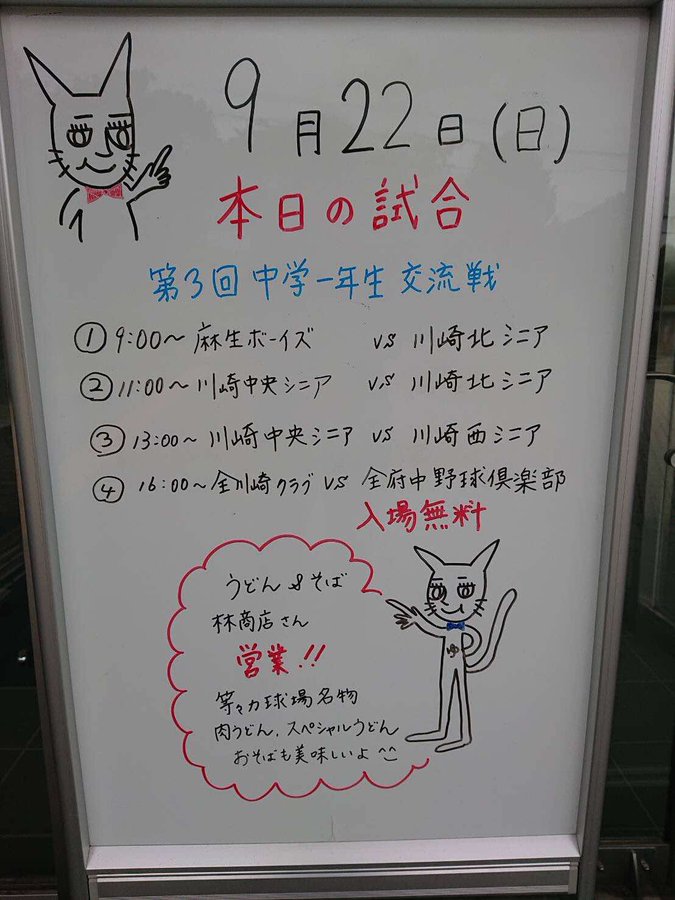 9月22日(日)
本日の試合
第3回 中学一年生 交流戦
① 9:00〜 麻生ボーイズ vs 川崎北シニア
② 11:00〜 川崎中央シニア vs 川崎北シニア
③ 13:00〜 川崎中央シニア vs 川崎西シニア
④ 16:00〜 全川崎クラブ vs 全府中野球倶楽部
入場無料
うどん&そば
林商店さん
営業!!
等々力球場名物
肉うどん、スペシャルうどん
おそばも美味しいよ^^
ゆ